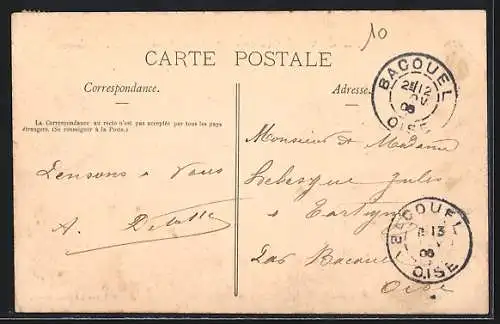 10
CARTE POSTALE
Correspondance.
Adresse.
La Correspondance au recto n'est pas acceptée par tous les pays
étrangers. (Se renseigner à la Poste.)
BACOUEL
OISE
Monsieur et Madame
Lebesgue Jules
à Tartigny
Par Bacouel
Oise
Pensons à Vous
A.
BACOUEL
13
OISE